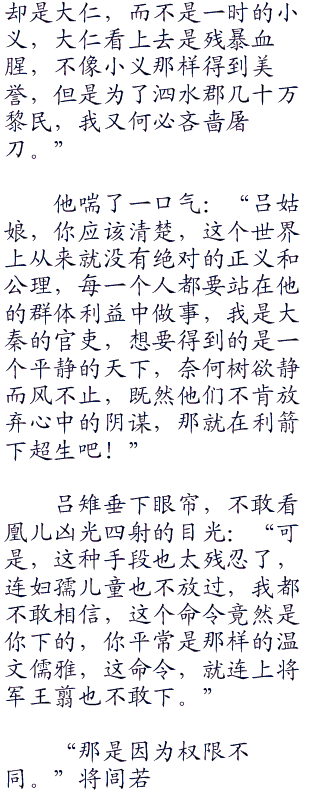 却是大仁，而不是一时的小
义，大仁看上去是残暴血
腥，不像小义那样得到美
誉，但是为了泗水郡几十万
黎民，我又何必吝啬屠
刀。”
他喘了一口气：“吕姑
娘，你应该清楚，这个世界
上从来就没有绝对的正义和
公理，每一个人都要站在他
的群体利益中做事，我是大
秦的官吏，想要得到的是一
个平静的天下，奈何树欲静
而风不止，既然他们不肯放
弃心中的阴谋，那就在利箭
下超生吧！”
吕雉垂下眼帘，不敢看
凰儿凶光四射的目光：“可
是，这种手段也太残忍了，
连妇孺儿童也不放过，我都
不敢相信，这个命令竟然是
你下的，你平常是那样的温
文儒雅，这命令，就连上将
军王翦也不敢下。”
“那是因为权限不
同。”将闾若